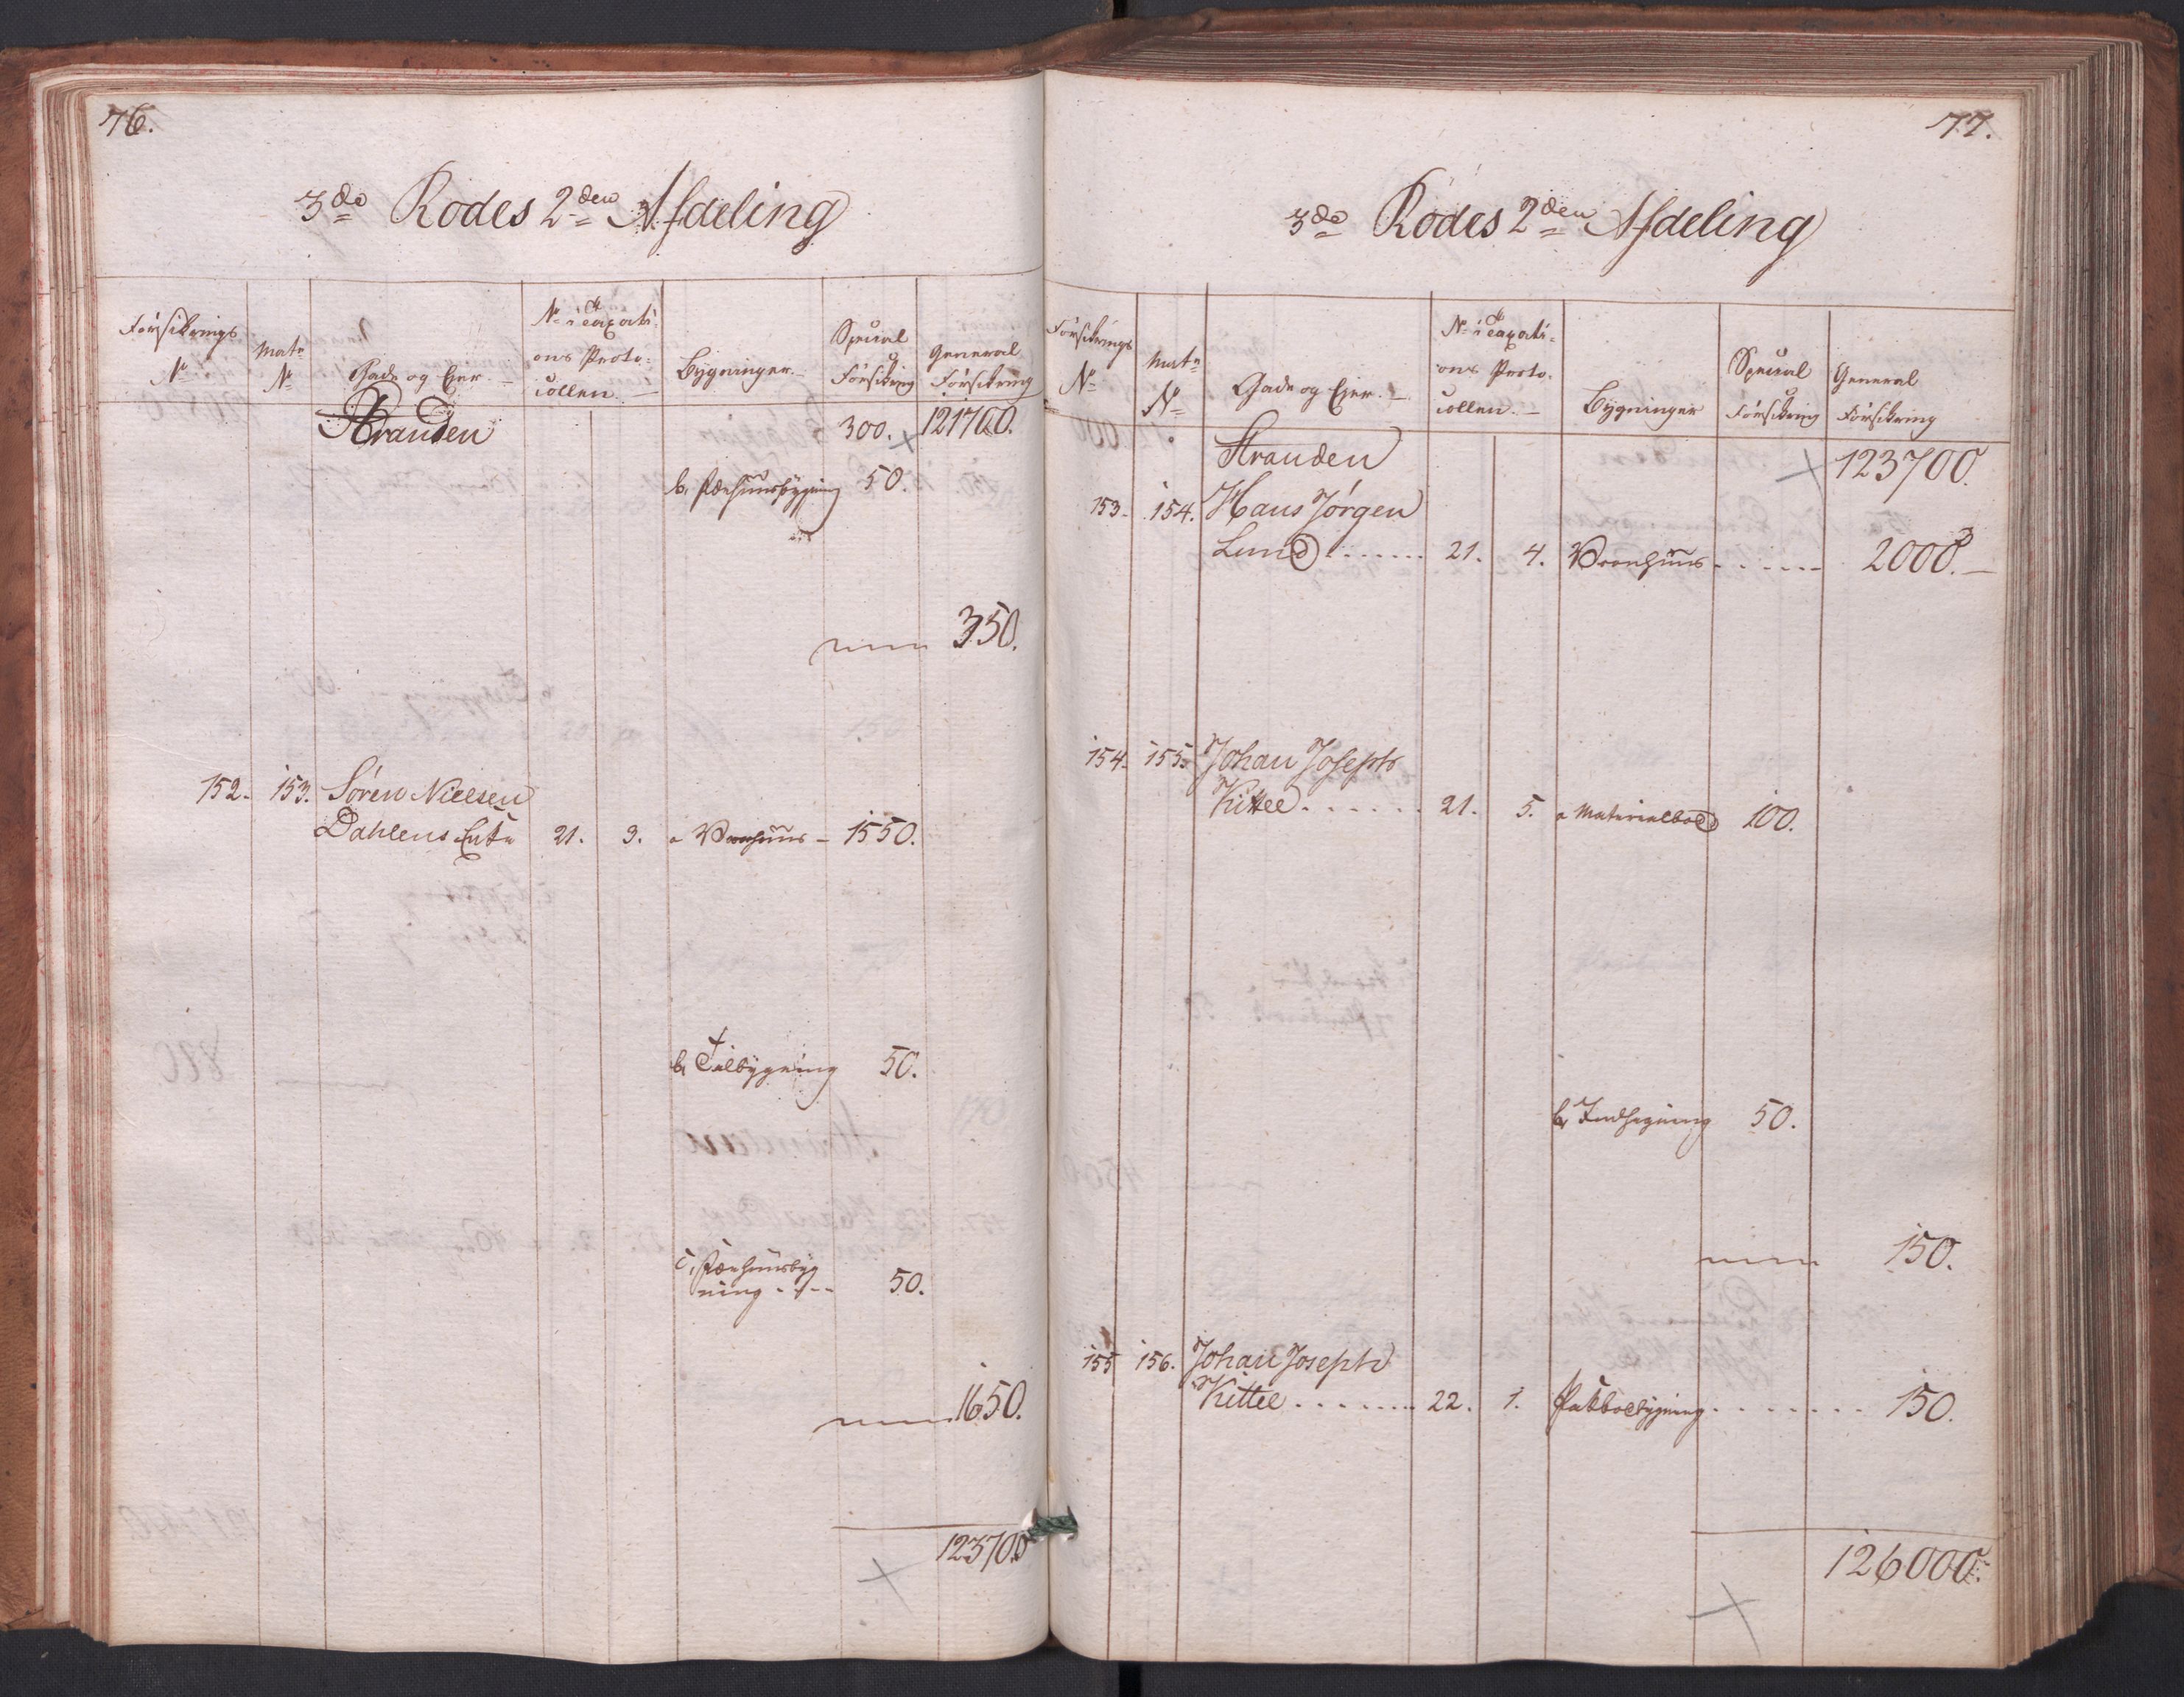 76.
3de Rodes 2den Afdeling
Försikrings No
Matr No
Gade og Ejer.
No i Taxati-
ons Proto-
collen.
Bygninger.
Special Försikring
General Försikring
Stranden 300. 121700.
b, Pakhuusbygning 50.
350.
152. 153. Sören Nielsen
Dahlens Enke 21. 3. a Vaanhuus - 1550.
b, Tilbygning 50.
c, Pakhuusbyg
ning 50.
1650.
123700
77.
3de Rodes 2den Afdeling
Försikrings No
Matr No
Gade og Ejer.
No i Taxati-
ons Proto-
collen.
Bygninger
Special Försikring
General Försikring
Stranden 123700.
153. 154. Hans Jörgen
Lund 21. 4. Vaanhuus 2000.
154. 155. Johan Joseph
Kittel 21. 5. a Materialbod 100.
b, Indhegning 50.
150.
155 156. Johan Joseph
Kittel 22. 1. Pakbodbygning 150.
126000.